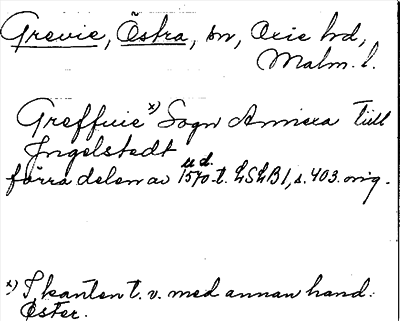 Grevie, Östra, sn, Oxie hd,
Malm. l.
Greffuie x) Sogn Annexa till
Jngelstedt
u.d.
förra delen av 1570-t. LSLB1, s. 403. orig.
x) I kanten t. v. med annan hand:
Öster.